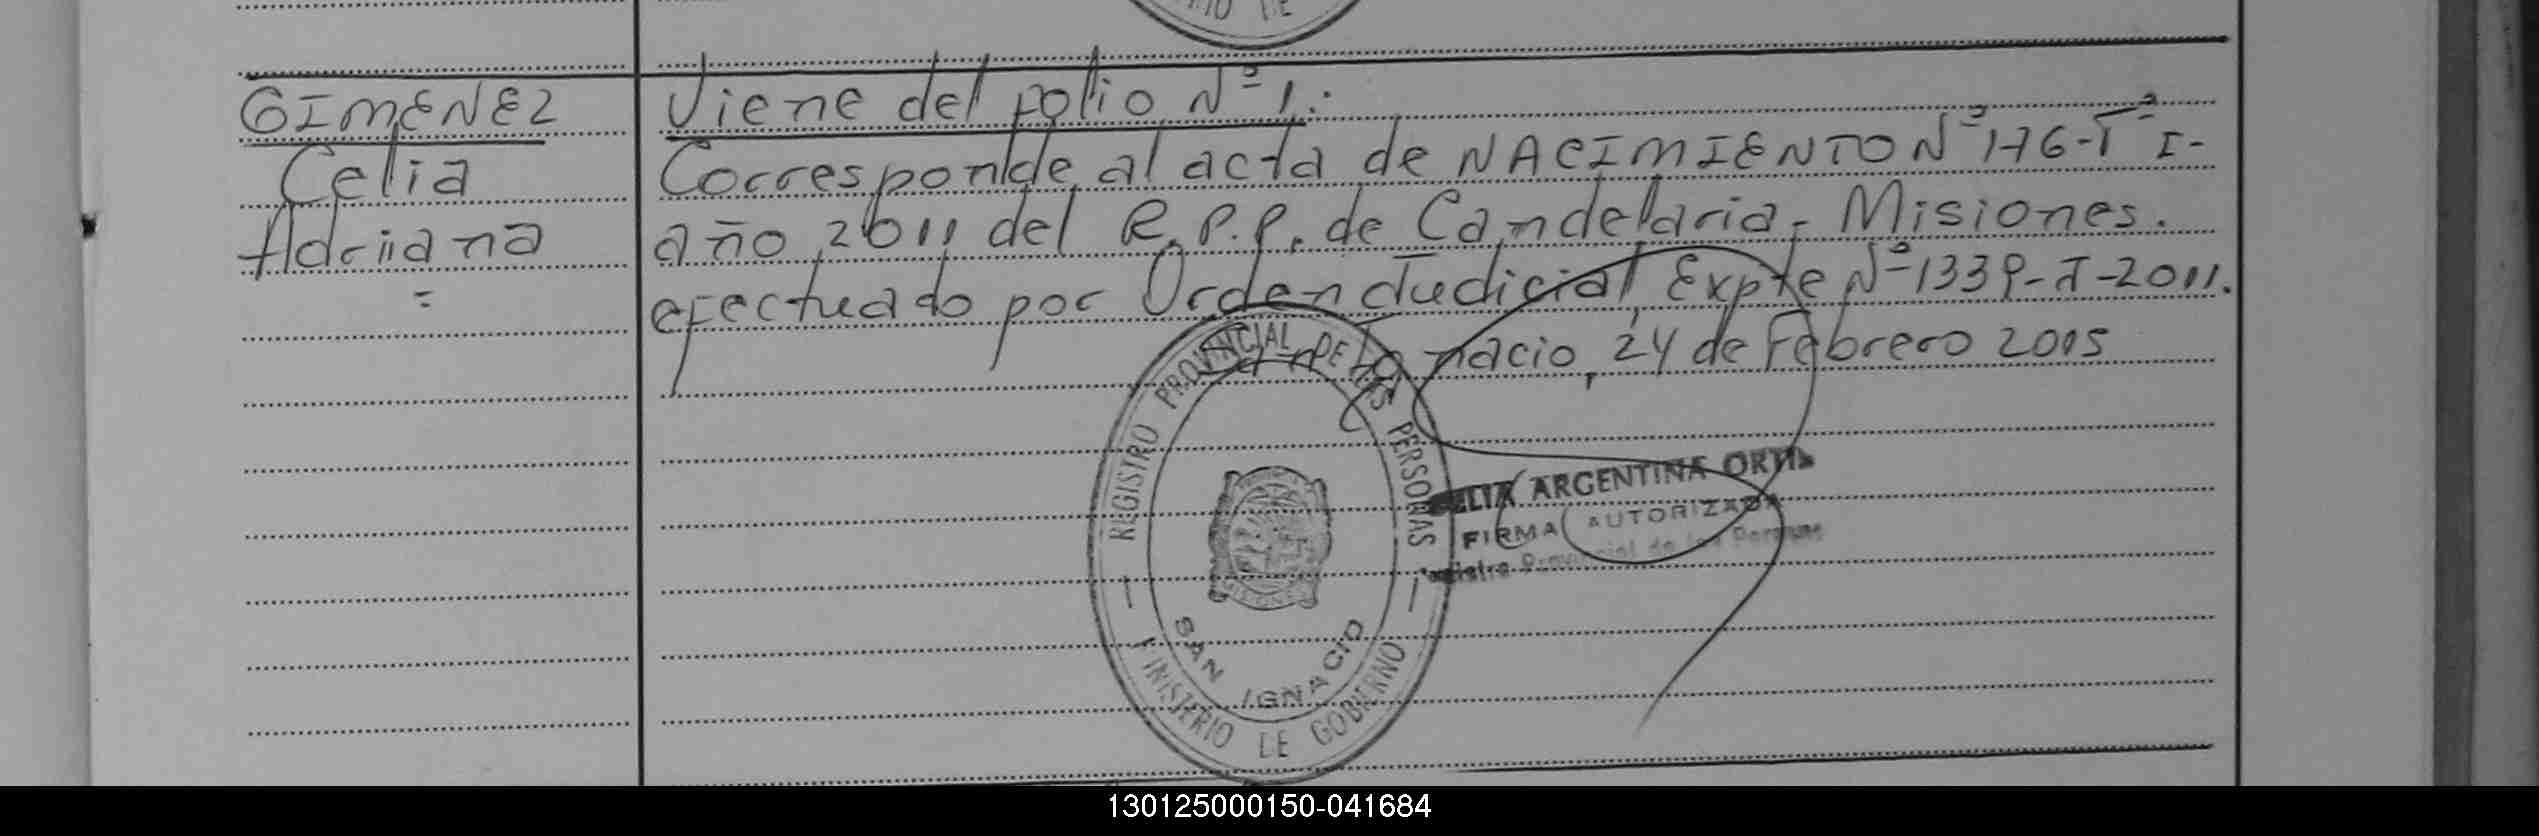 GIMENEZ
Celia
Adriana
Viene del folio Nº 1.:
Corresponde al acta de NACIMIENTO Nº 176-Tº I-
año 2011 del R.P.P. de Candelaria - Misiones.
efectuado por Orden Judicial, Expte Nº 1339-J-2011.
San Ignacio, 24 de Febrero 2015
REGISTRO PROVINCIAL DE LAS PERSONAS
SAN IGNACIO
MINISTERIO DE GOBIERNO
ARGENTINA
FIRMA AUTORIZADA
Provincial de las Personas
130125000150-041684